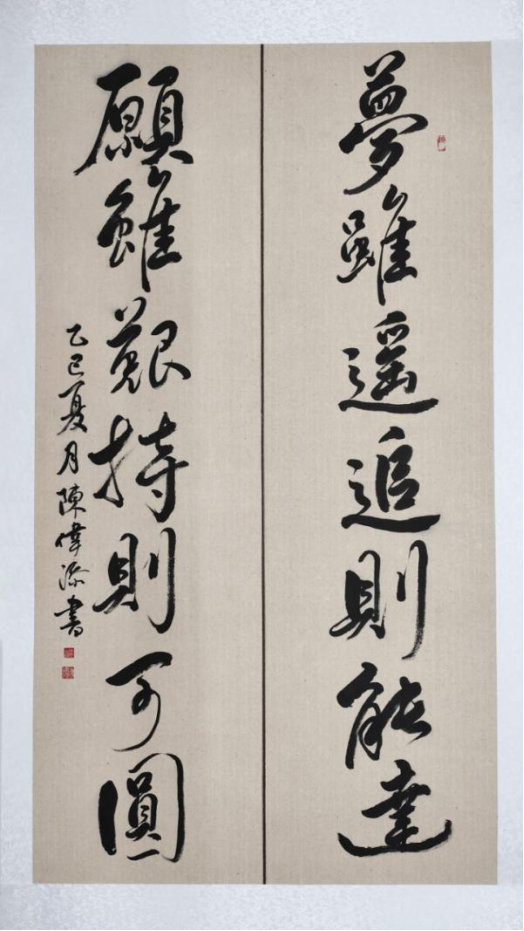 夢雖遥追則能達
願雖艱持則可圓
乙巳夏月陳偉添書